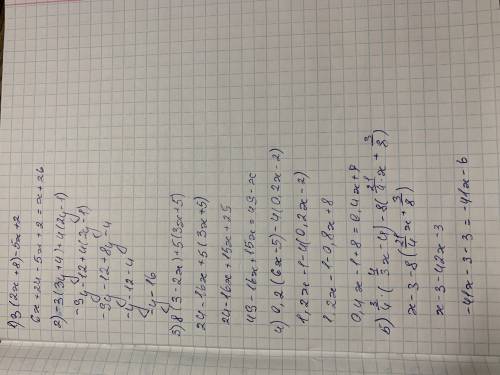 1) 3(2x+8)-5x+2
6x+24-5x+2=x+26
2) -3(3y+4)+4(2y-1)
-9y-12+4(2y-1)
-9y-12+8y-4
-y-12-4
-y-16
3) 8(3-2x)+5(3x+5)
24-16x+5(3x+5)
24-16x+15x+25
49-16x+15x=49-x
4) 0,2(6x-5)-4(0,2x-2)
1,2x-1-4(0,2x-2)
1,2x-1-0,8x+8
0,4x-1+8=0,4x+7
x-3-8(21/4x+3/8)
x-3-42x-3
-41x-3-3=-41x-6